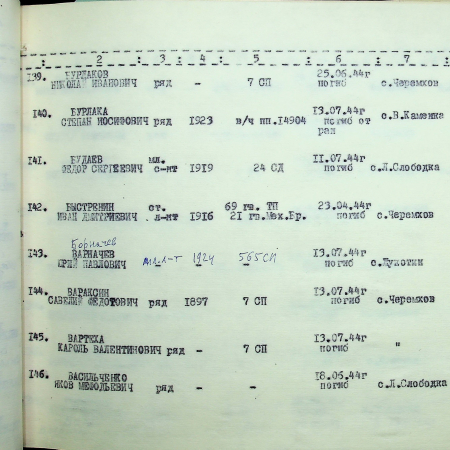 : 2 : 3 : 4 : 5 : 6 : 7 :
139. БУРЛАКОВ 25.06.44г
НИКОЛАЙ ИВАНОВИЧ ряд - 7 СП погиб с.Черемхов
140. БУРЛАКА 13.07.44г
СТЕПАН ИОСИФОВИЧ ряд 1923 в/ч пп.14904 погиб от с.В.Каменка
ран
141. БУЛАЕВ мл. 11.07.44г
ФЕДОР СЕРГЕЕВИЧ с-нт 1919 24 СД погиб с.Л.Слободка
142. БЫСТРЕНИН ст. 69 гв. ТП 23.04.44г
ИВАН ДМИТРИЕВИЧ л-нт 1916 21 гв.Мех.Бр. погиб с.Черемхов
Борначев
143. ВАРНАЧЕВ 13.07.44г
ЮРИЙ ПАВЛОВИЧ мл.л-т 1924 565СП погиб
144. ВАРАКСИН 13.07.44г
САВЕЛИЙ ФЕДОТОВИЧ ряд 1897 7 СП погиб с.Черемхов
145. ВАРТЕХА 13.07.44г
КАРОЛЬ ВАЛЕНТИНОВИЧ ряд - 7 СП погиб "
146. ВАСИЛЬЧЕНКО 18.06.44г
ЯКОВ МЕФОДЬЕВИЧ ряд - - погиб с.Л.Слободка